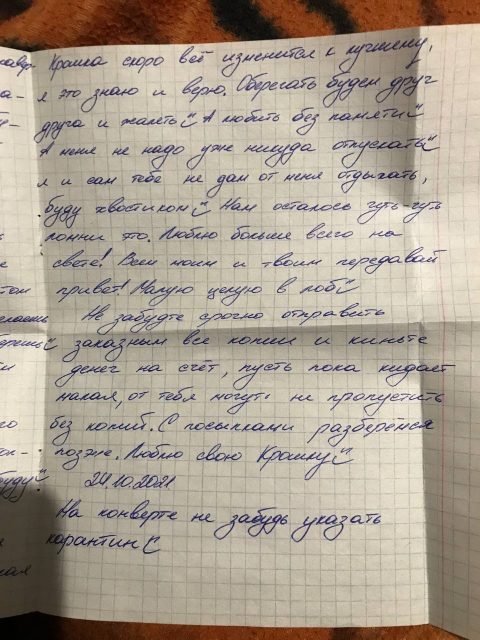 Крошка скоро всё изменится к лучшему,
я это знаю и верю. Оберегать будем друг
друга и жалеть :) А любить без памяти :)
А меня не надо уже никуда отпускать :)
я и сам тебе не дам от меня отдыхать,
буду хвостиком :) Нам осталось чуть-чуть
помни это. Люблю больше всего на
свете! Всем моим и твоим передавай
привет! Малую целую в лоб :)
Не забудьте срочно отправить
заказным все копии и киньте
денег на счёт, пусть пока кидает
малая, от тебя могут не пропустить
без копий. С посылками разберёмся
позже. Люблю свою Крошку :)
24.10.2021
На конверте не забудь указать
карантин :(